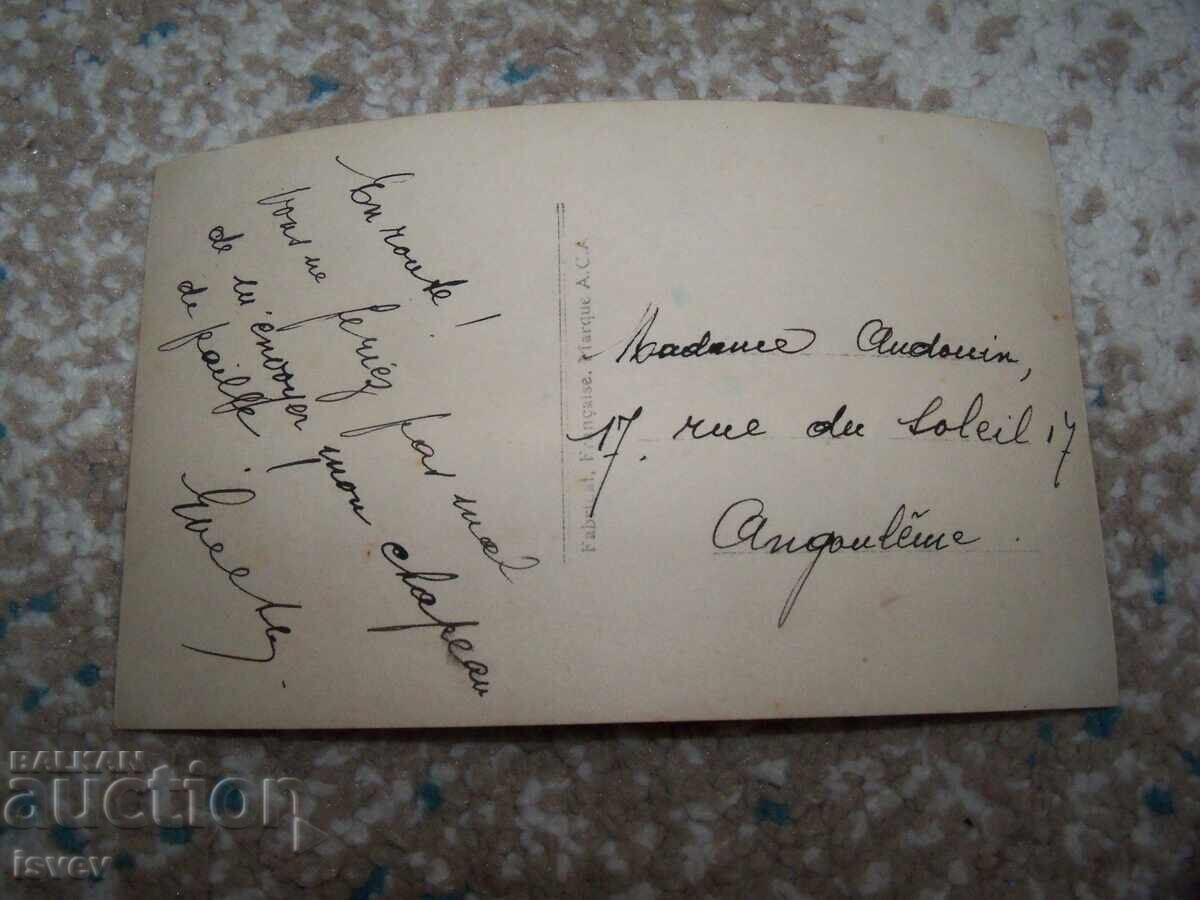 En route!
Vous ne feriez pas mal
de m'envoyer mon chapeau
de paille.
Fabricat. Française. Marque A.C.A
Madame Audouin,
17. rue du Soleil 17
Angoulême.
BALKAN
auction
isvev